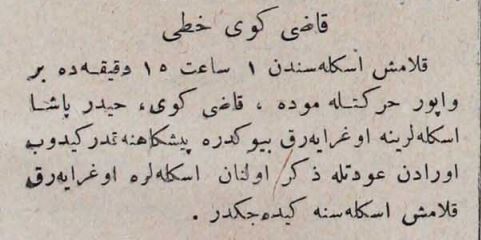 قاضی کوی خطی
قلامش اسکله‌سندن ١ ساعت ١٥ دقیقه‌ده بر
واپور حرکتله موده ، قاضی کوی، حیدر پاشا
اسکله‌لرینه اوغرایه‌رق بیوکدره پیشکاهنه قدر کیدوب
اورادن عودتله ذکر اولنان اسکله‌لره اوغرایه‌رق
قلامش اسکله‌سنه کیده‌جکدر .